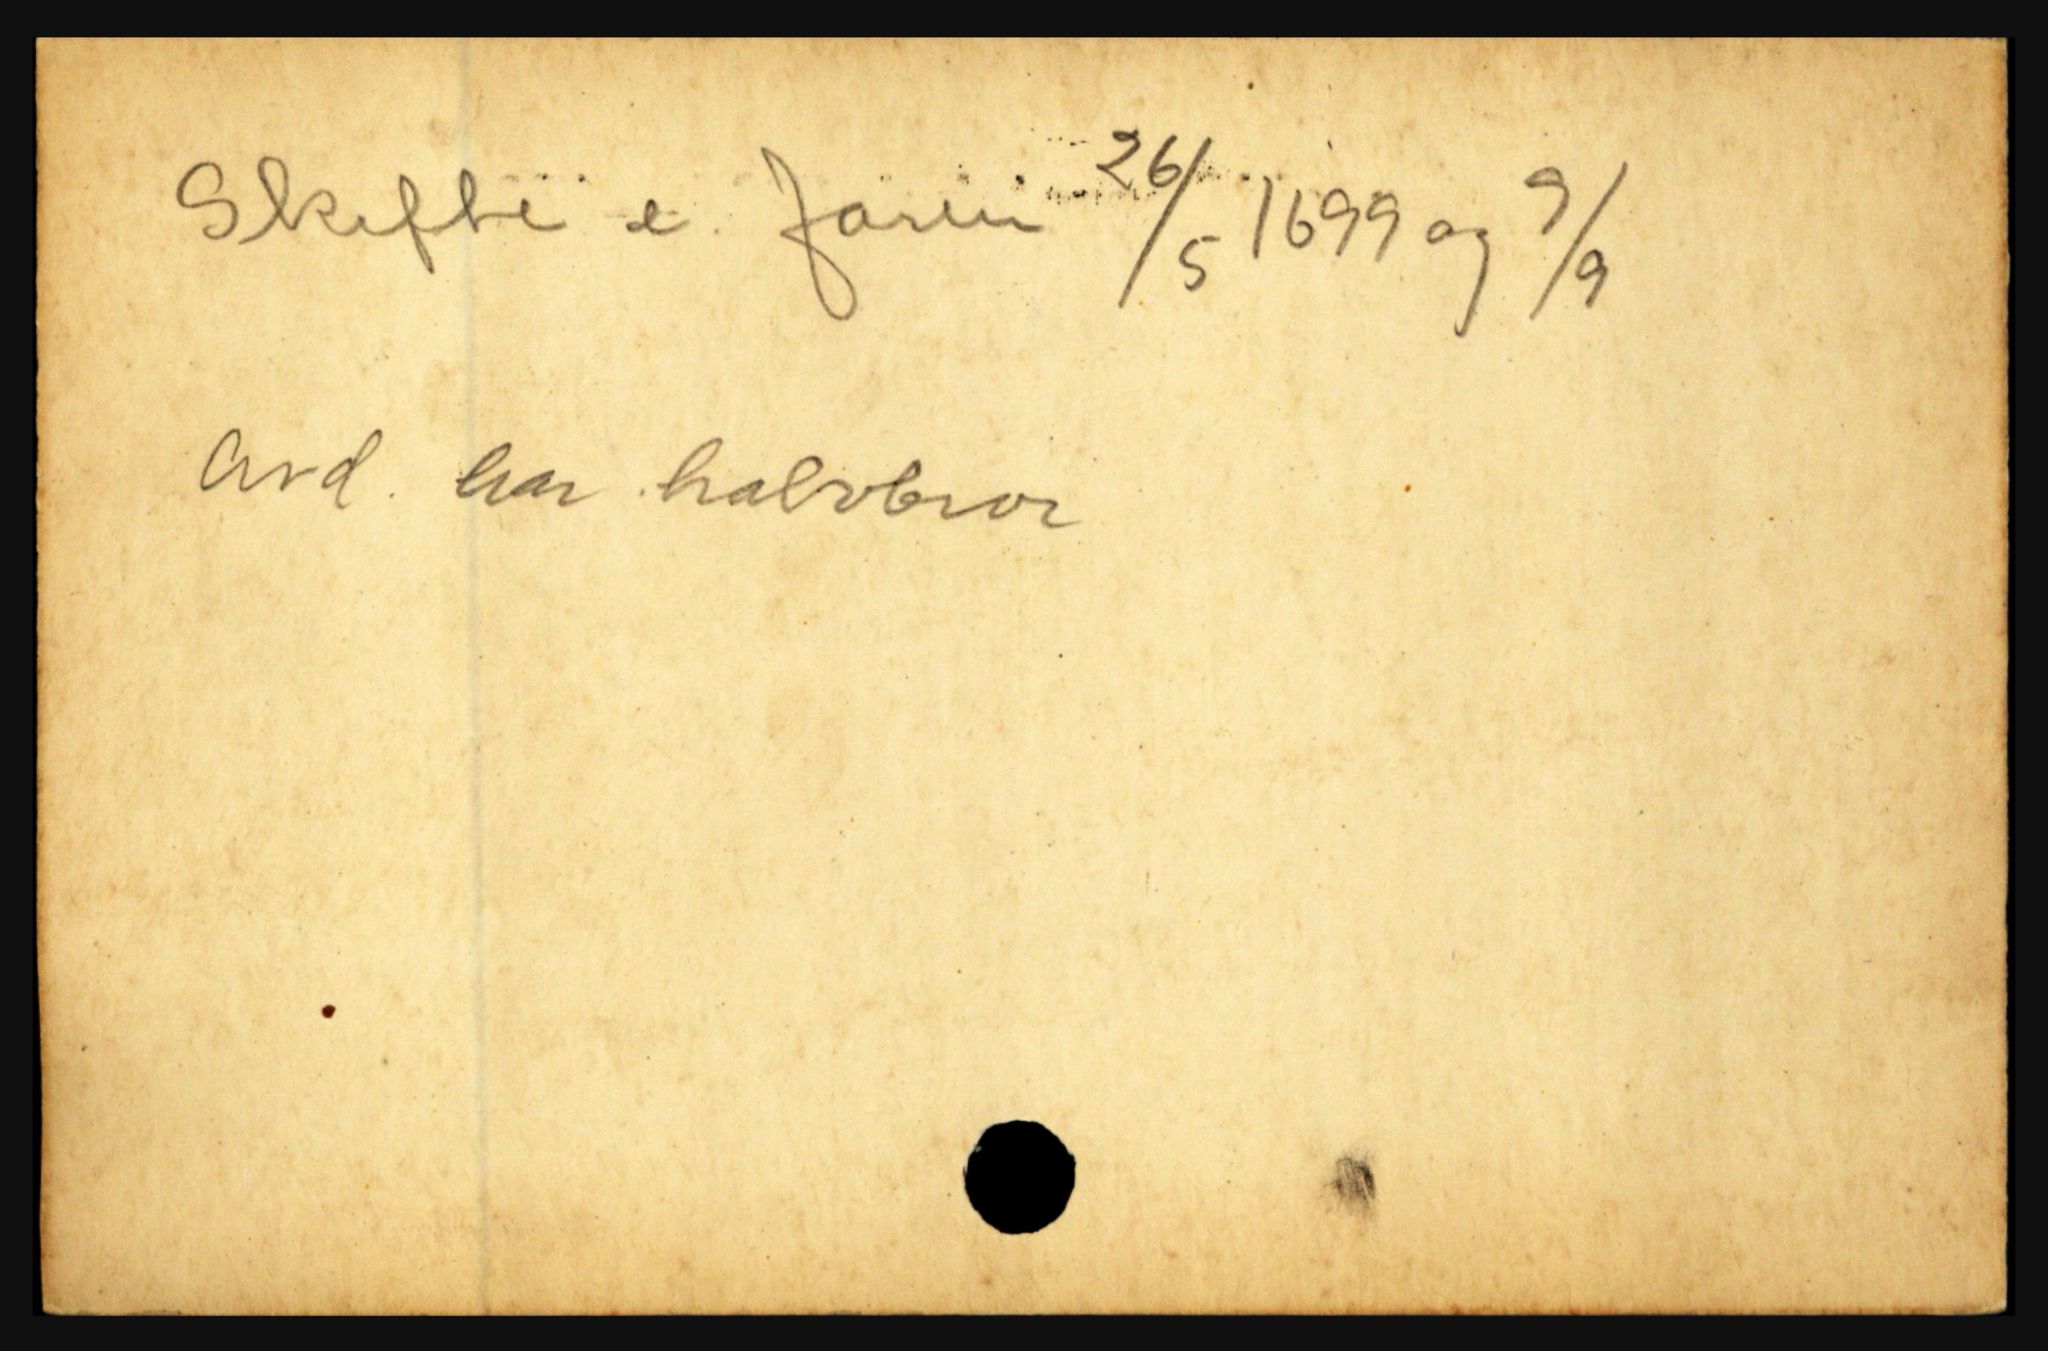 Skifte e. faren 26/5 1699 og 9/9
Avd. har halvbror